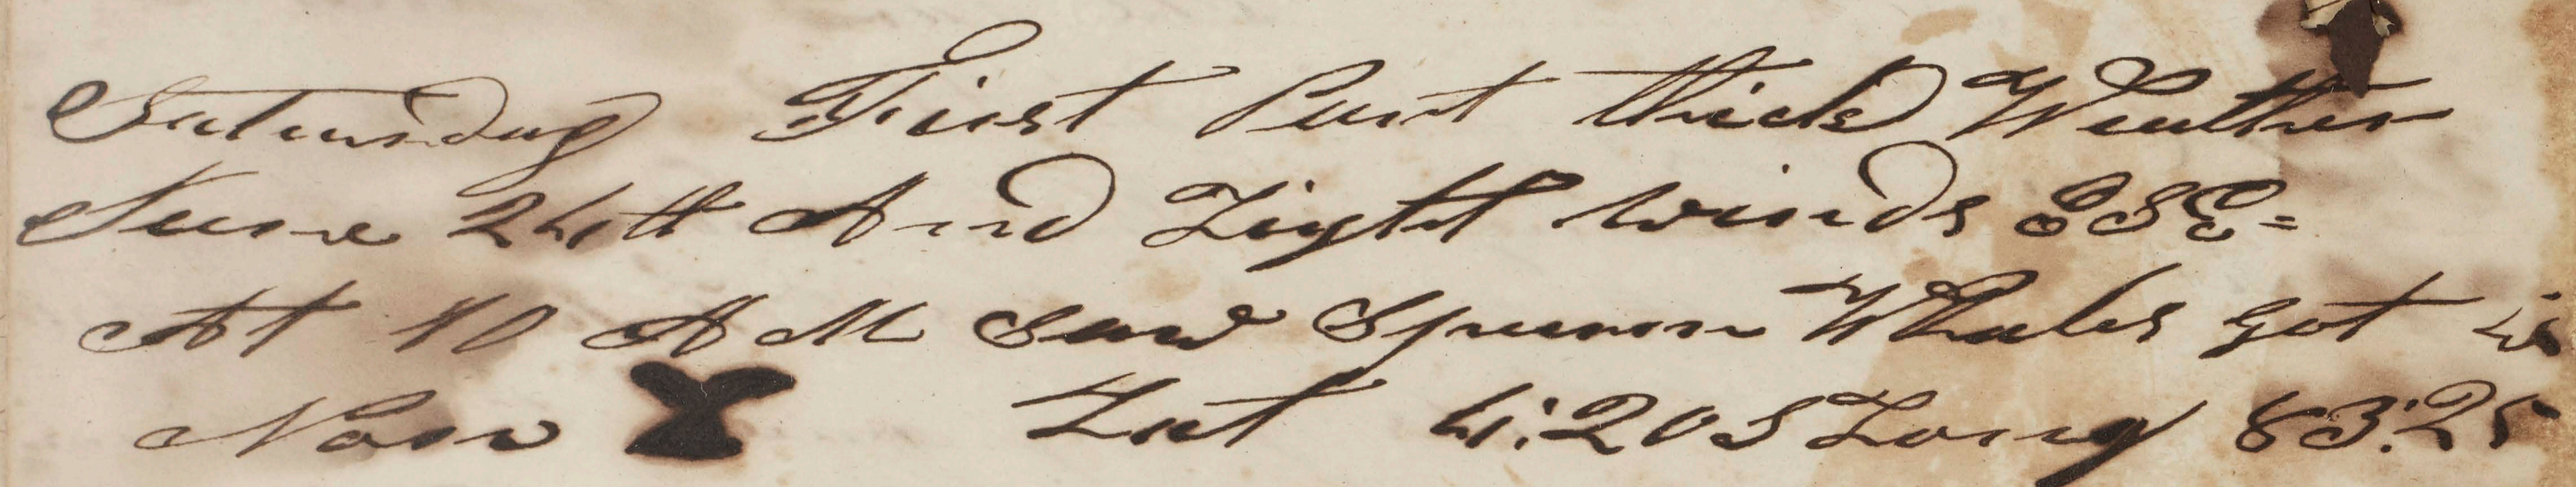 Saturday First Part thick Weather
June 24th And Light winds ESE=
At 10 A M Saw Sperm Whales got
Non Lat 4:20 S Long 83:25